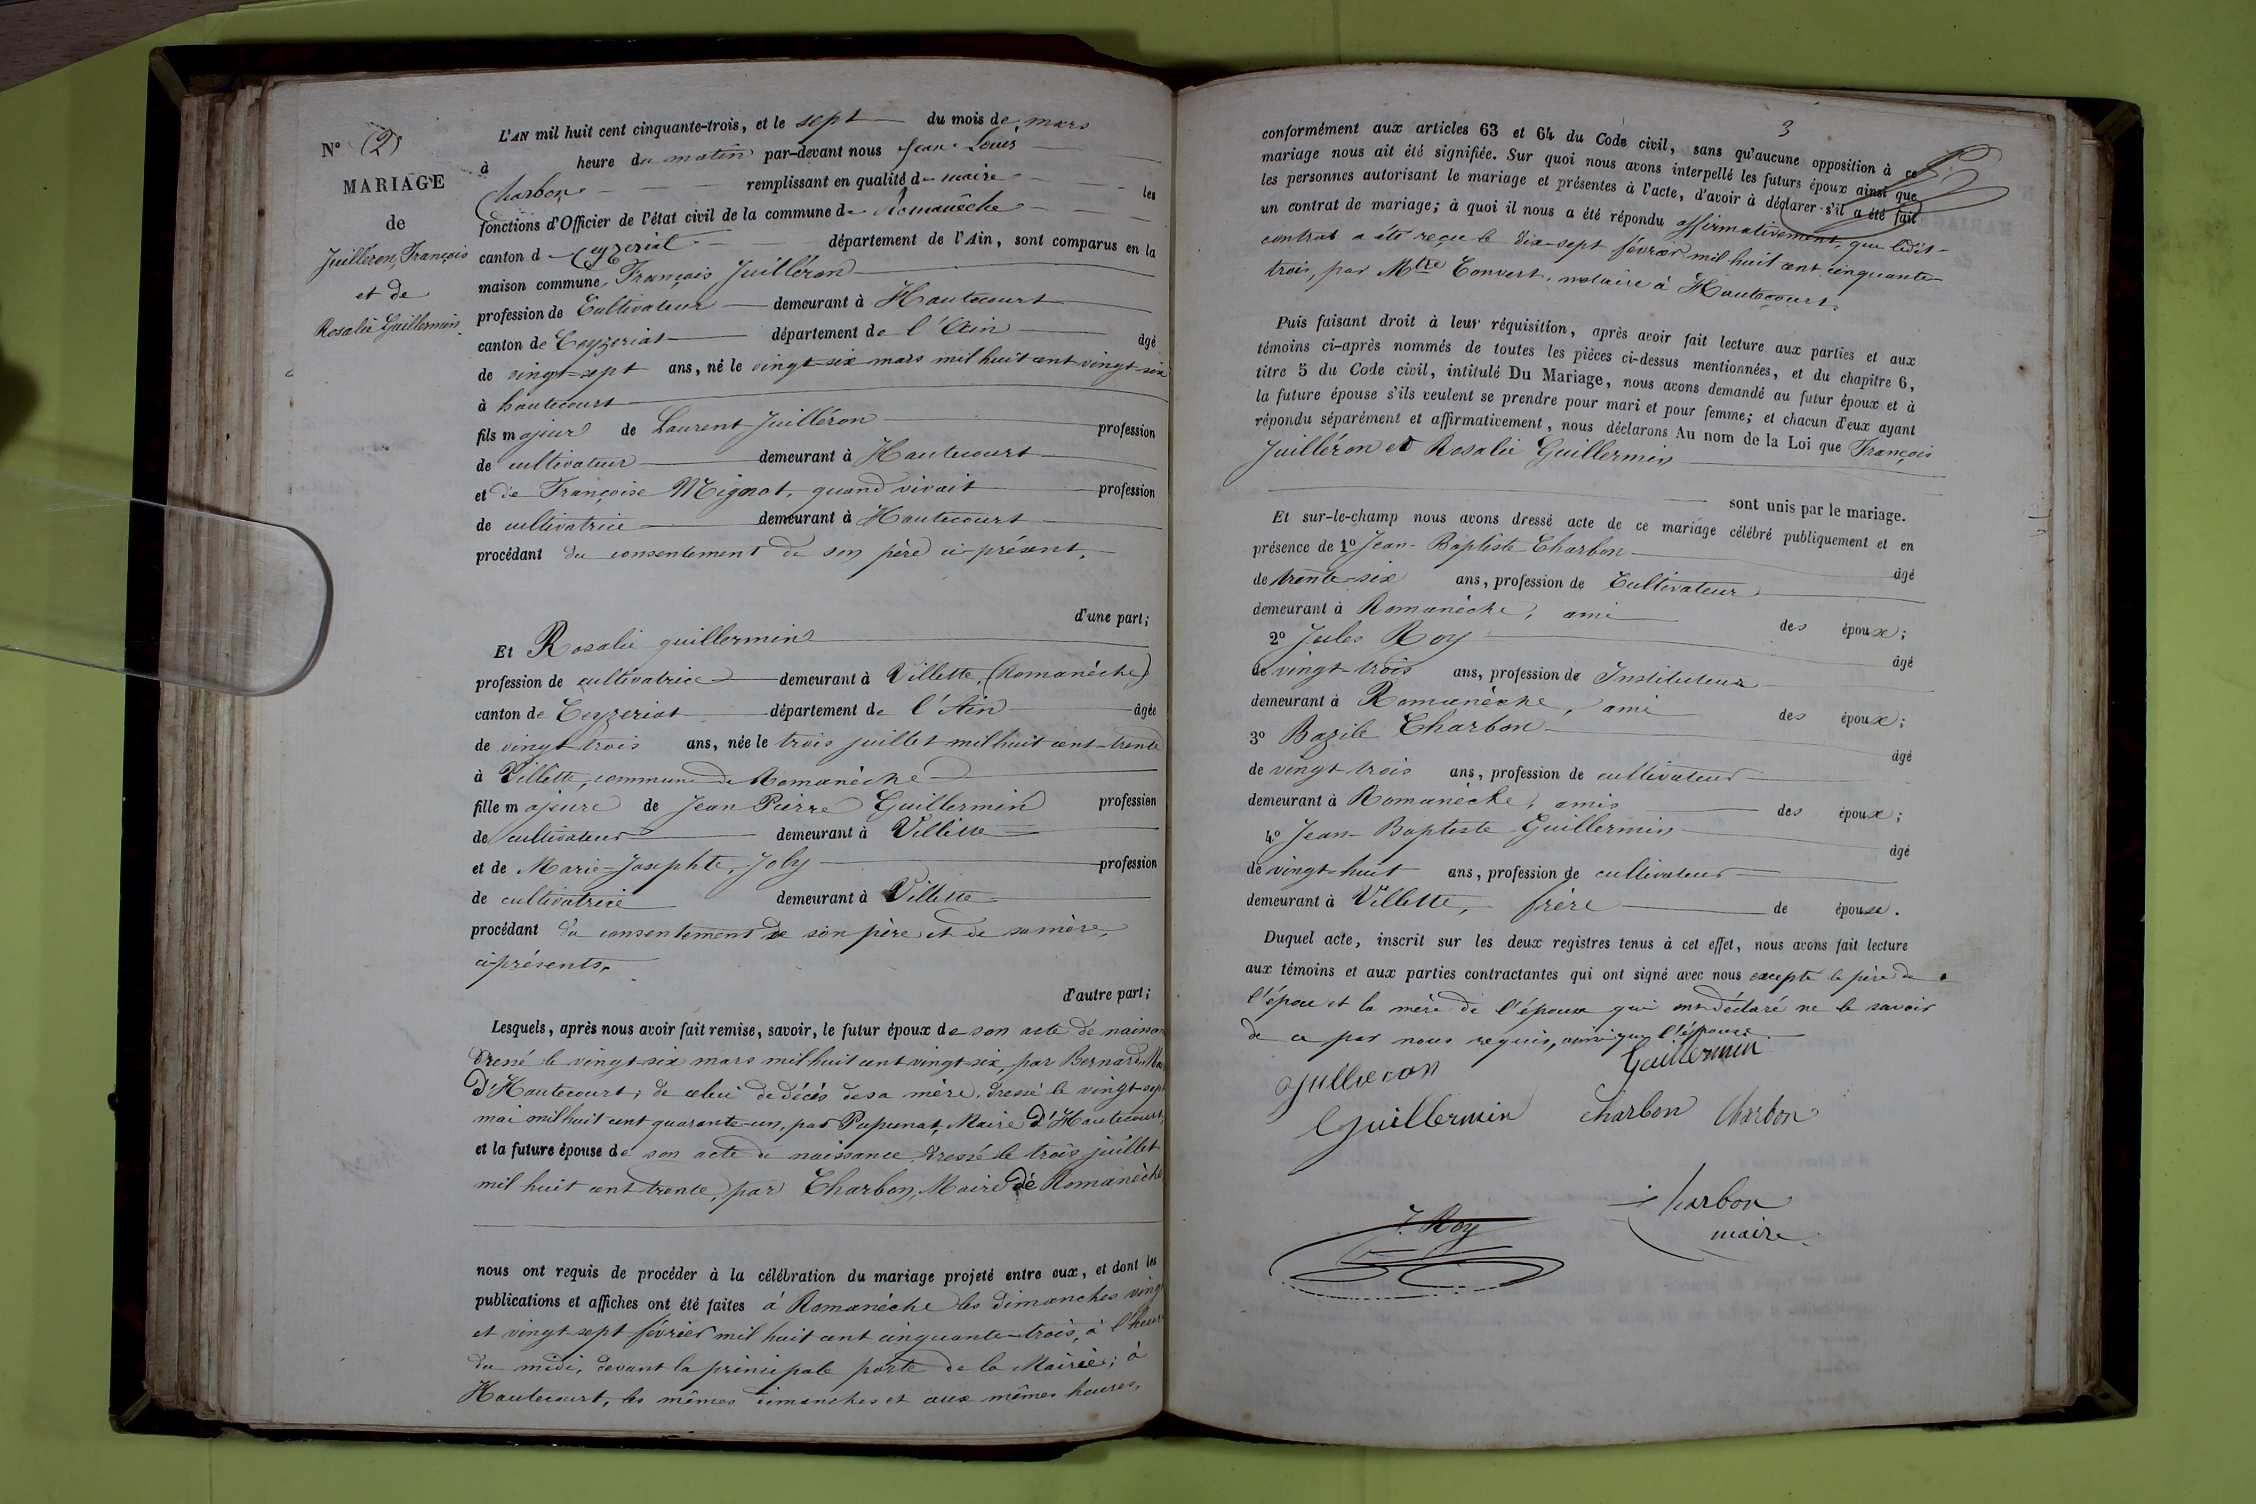 N° (2)
MARIAGE
de
Juilléron, François
et de
Rosalie Guillermin.
L'AN mil huit cent cinquante-trois, et le sept du mois de mars
à heure du matin par-devant nous Jean-Louis
Charbon remplissant en qualité de maire les
fonctions d'Officier de l'état civil de la commune de Romanèche
canton d Ceyzeriat département de l'Ain, sont comparus en la
maison commune, François Juilléron
profession de Cultivateur demeurant à Hautecourt
canton de Ceyzeriat département de l'Ain âgé
de vingt-sept ans, né le vingt-six mars mil huit cent vingt-six
à hautecourt
fils majeur de Laurent Juilléron profession
de cultivateur demeurant à Hautecourt
et de Françoise Mignot, quand vivait profession
de cultivatrice demeurant à Hautecourt
procédant du consentement de son père ci-présent,
d'une part;
Et Rosalie guillermin
profession de cultivatrice demeurant à Villette, (Romanèche)
canton de Ceyzeriat département de l'Ain âgée
de vingt-trois ans, née le trois juillet mil huit cent-trente
à Villette, commune de Romanèche
fille majeure de Jean Pierre Guillermin profession
de cultivateur demeurant à Villette
et de Marie-Josephte, Joly profession
de cultivatrice demeurant à Villette
procédant du consentement de son père et de sa mère,
ci-présents.
d'autre part;
Lesquels, après nous avoir fait remise, savoir, le futur époux de son acte de naissan
dressé le vingt-six mars mil huit cent vingt-six, par Bernard, Ma
d'Hautecourt; de celui de décès de sa mère, dressé le vingt-sept
mai mil huit cent quarante-un, par Pupunat, Maire d'Hautecourt,
et la future épouse de son acte de naissance dressé le trois juillet
mil huit cent trente, par Charbon, Maire de Romanèche
nous ont requis de procéder à la célébration du mariage projeté entre eux, et dont les
publications et affiches ont été faites à Romanèche les dimanches vingt
et vingt-sept février mil huit cent cinquante-trois, à l'heure
du midi, devant la principale porte de la Mairie; à
Hautecourt, les mêmes dimanches et aux mêmes heures,
3
conformément aux articles 63 et 64 du Code civil, sans qu'aucune opposition à ce
mariage nous ait été signifiée. Sur quoi nous avons interpellé les futurs époux ainsi que
les personnes autorisant le mariage et présentes à l'acte, d'avoir à déclarer s'il a été fait
un contrat de mariage; à quoi il nous a été répondu affirmativement, que ledit-
contrat a été reçu le dix-sept février mil huit cent cinquante-
trois, par Mtre Convert, notaire à Hautecourt.
Puis faisant droit à leur réquisition, après avoir fait lecture aux parties et aux
témoins ci-après nommés de toutes les pièces ci-dessus mentionnées, et du chapitre 6,
titre 5 du Code civil, intitulé Du Mariage, nous avons demandé au futur époux et à
la future épouse s'ils veulent se prendre pour mari et pour femme; et chacun d'eux ayant
répondu séparément et affirmativement, nous déclarons Au nom de la Loi que François
Juilléron et Rosalie Guillermin
sont unis par le mariage.
Et sur-le-champ nous avons dressé acte de ce mariage célébré publiquement et en
présence de 1° Jean-Baptiste Charbon âgé
de trente-six ans, profession de Cultivateur
demeurant à Romanèche, ami des époux;
2° Jules Roy âgé
de vingt-trois ans, profession de Instituteur
demeurant à Romanèche, ami des époux;
3° Bazile Charbon âgé
de vingt-trois ans, profession de cultivateur
demeurant à Romanèche, amis des époux;
4° Jean-Baptiste Guillermin âgé
de vingt-huit ans, profession de cultivateur
demeurant à Villette, frère de épouse.
Duquel acte, inscrit sur les deux registres tenus à cet effet, nous avons fait lecture
aux témoins et aux parties contractantes qui ont signé avec nous excepté le père de
l'époux et la mère de l'épouse qui ont déclaré ne le savoir
de ce par nous requis, ainsi que l'épouse
Juilleron Guillermin
Guillermin Charbon Charbon
J. Roy
Charbon
maire